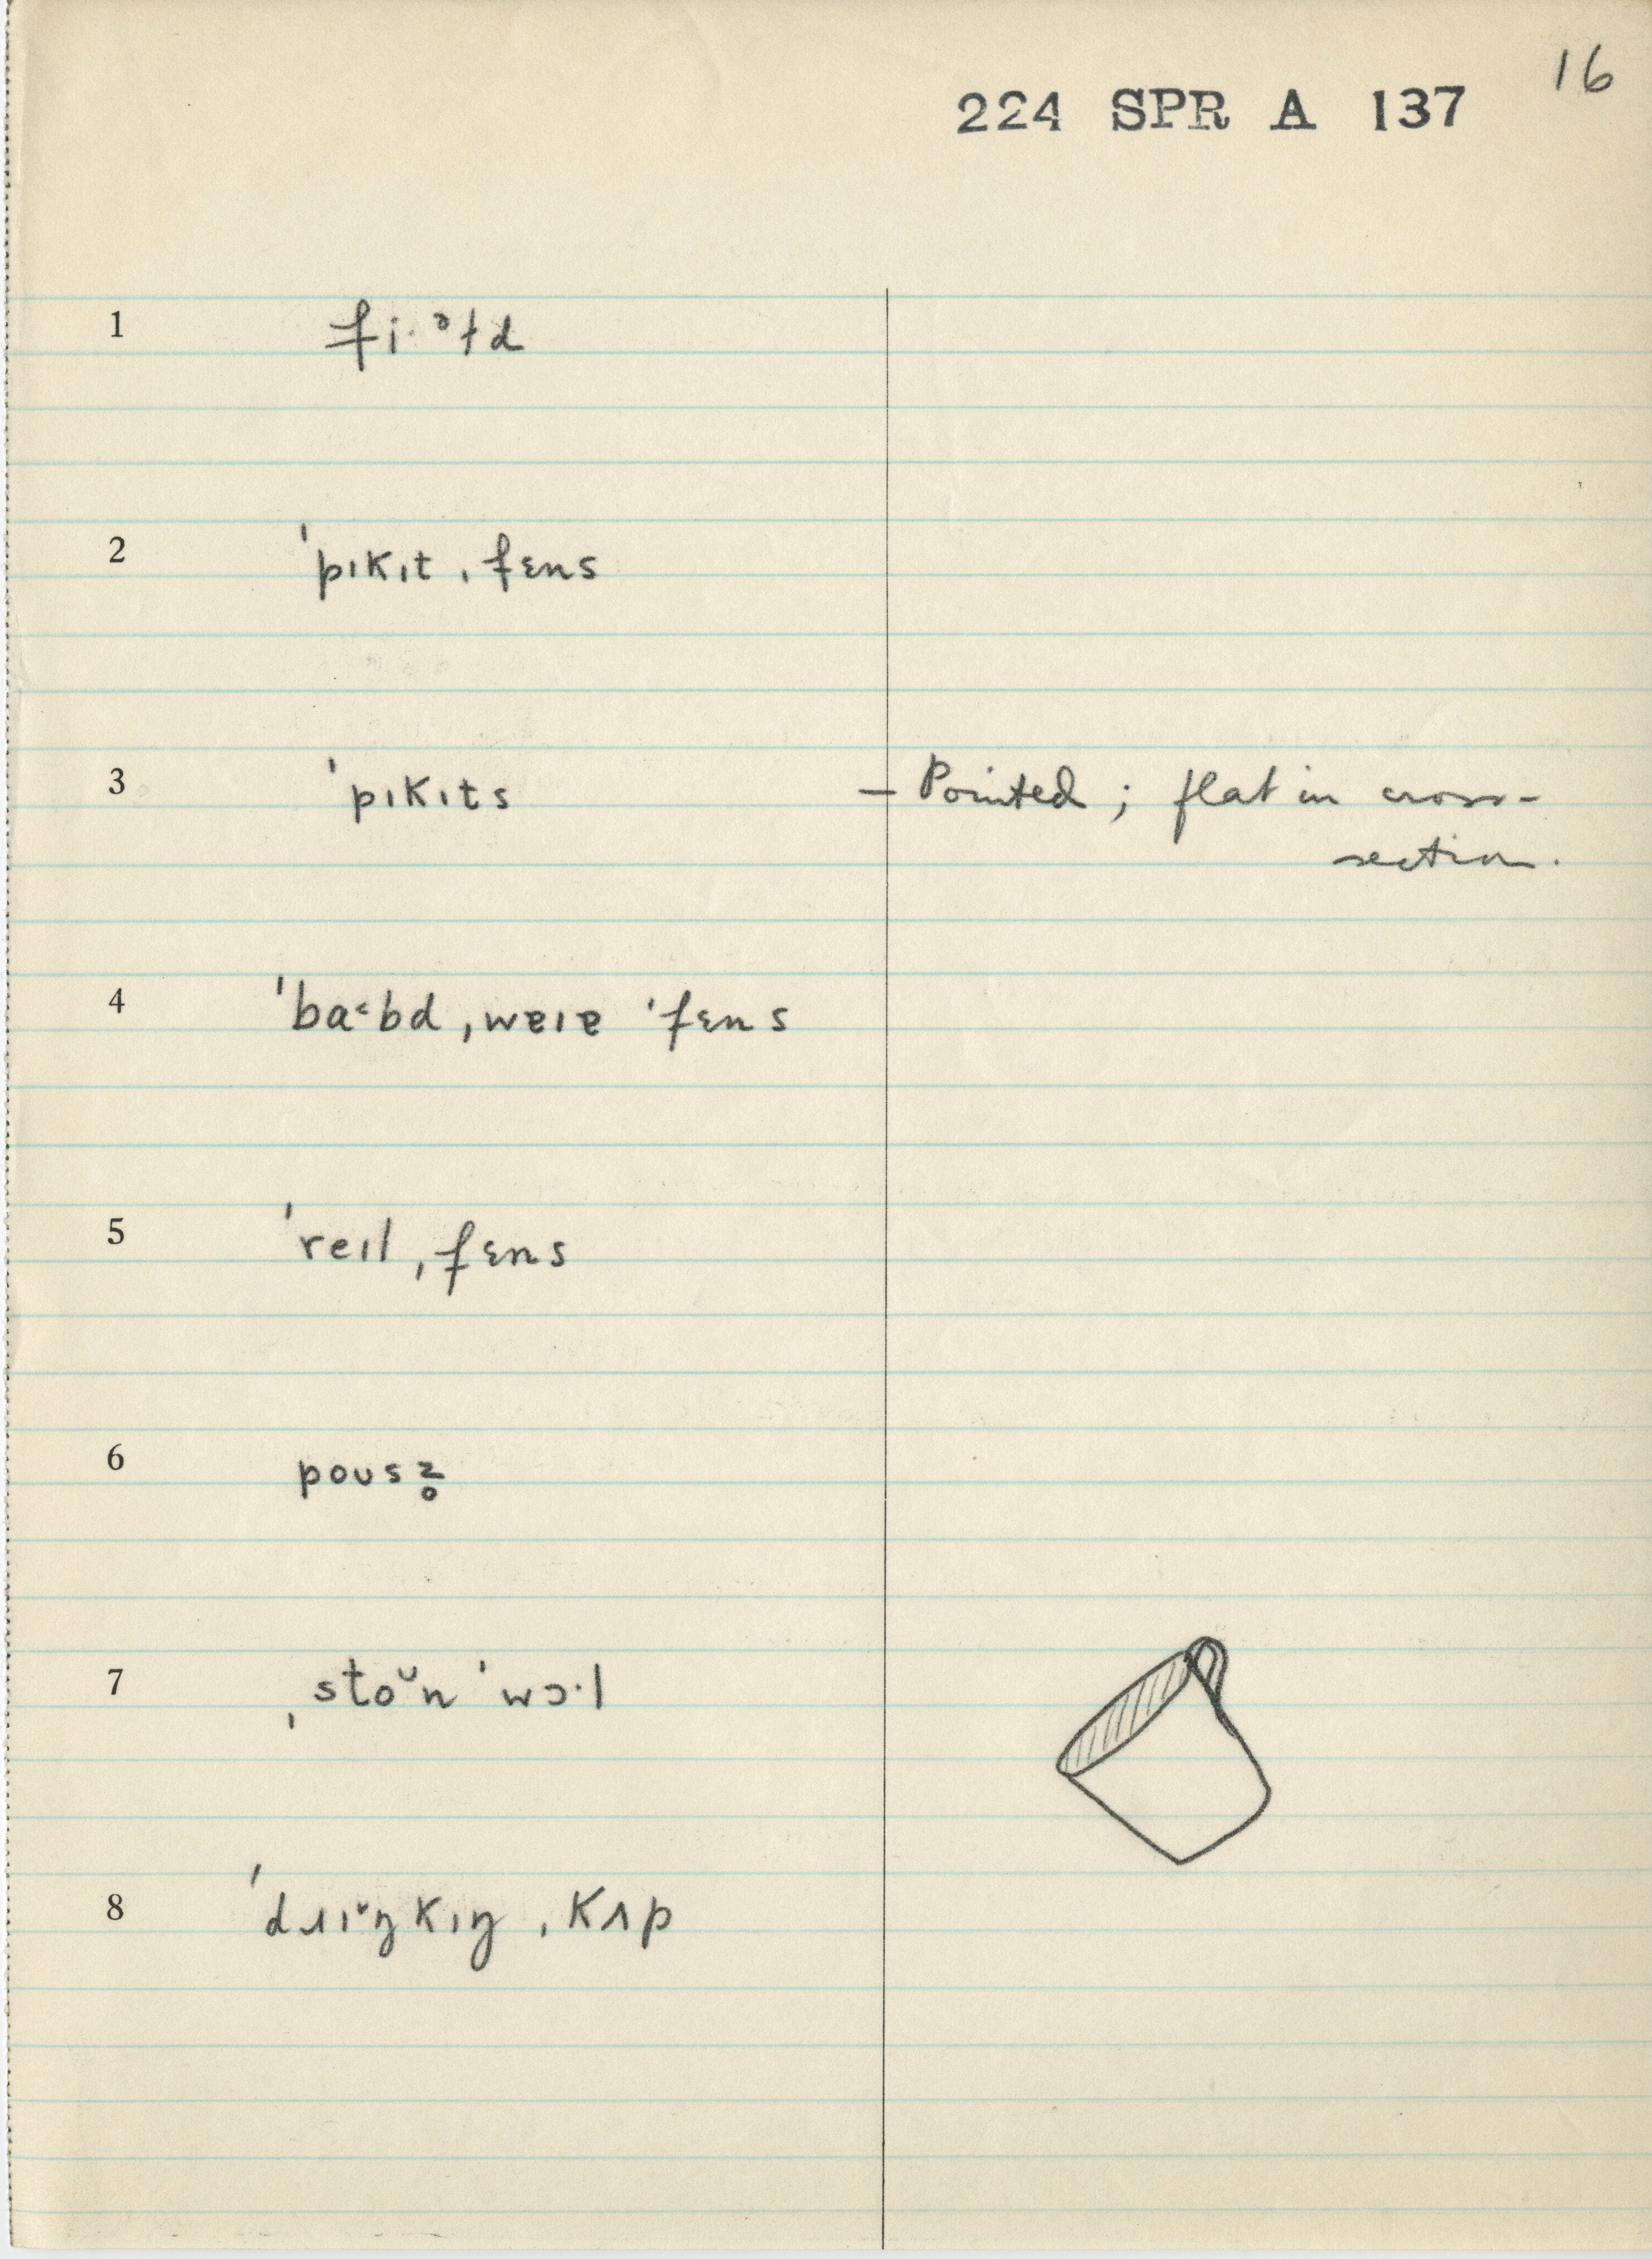 16
224 SPR A 137
1 fi·ᵊɫd
2 ˈpɪkɪt ˌfɛns
3 ˈpɪkɪts — Pointed; flat in cross-
section.
4 ˈba˂bd ˌwɐɪɐ ˈfɛns
5 ˈreɪl ˌfɛns
6 poʊsz̥
7 ˌstoᵕn ˈwɔ·l
8 ˈdɹɪ˅ŋkɪŋ ˌkʌp